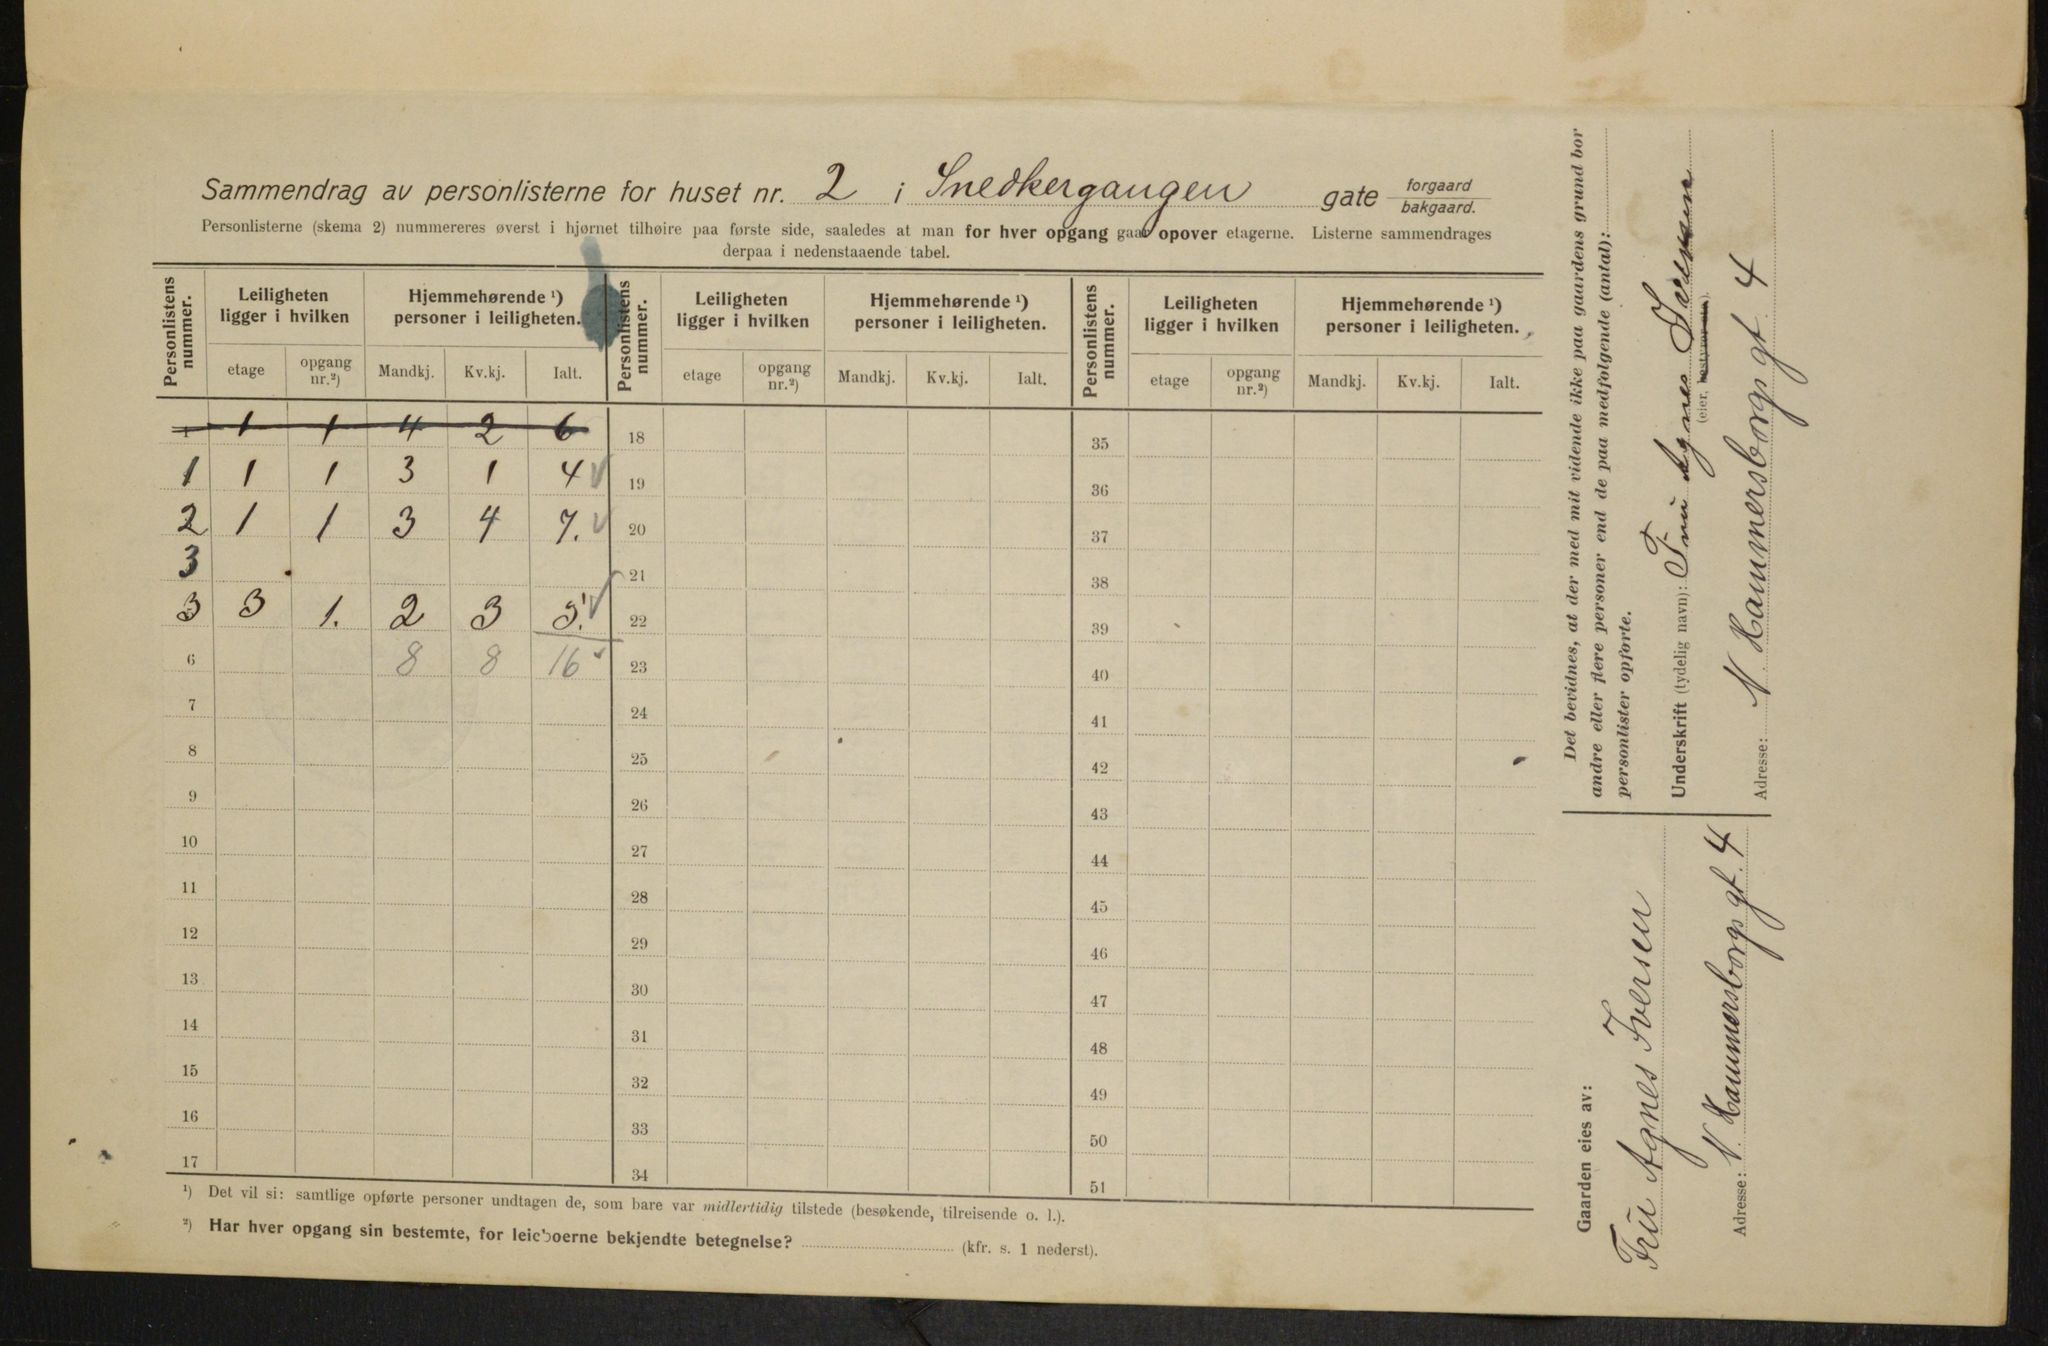 Sammendrag av personlisterne for huset nr. 2 i Snedkergangen gate forgaard / bakgaard.
Personlisterne (skema 2) nummereres øverst i hjørnet tilhøire paa første side, saaledes at man for hver opgang gaar opover etagerne. Listerne sammendrages
derpaa i nedenstaaende tabel.
Personlistens nummer. Leiligheten ligger i hvilken Hjemmehørende ¹) personer i leiligheten. Personlistens nummer. Leiligheten ligger i hvilken Hjemmehørende ¹) personer i leiligheten. Personlistens nummer. Leiligheten ligger i hvilken Hjemmehørende ¹) personer i leiligheten.
etage opgang nr.²) Mandkj. Kv.kj. Ialt. etage opgang nr.²) Mandkj. Kv.kj. Ialt. etage opgang nr.²) Mandkj. Kv.kj. Ialt.
1 1 1 4 2 6 18 35
1 1 1 3 1 4 19 36
2 1 1 3 4 7. 20 37
3 21 38
3 3 1. 2 3 5. 22 39
6 8 8 16 23 40
7 24 41
8 25 42
9 26 43
10 27 44
11 28 45
12 29 46
13 30 47
14 31 48
15 32 49
16 33 50
17 34 51
¹) Det vil si: samtlige opførte personer undtagen de, som bare var midlertidig tilstede (besøkende, tilreisende o. l.).
²) Har hver opgang sin bestemte, for leieboerne bekjendte betegnelse? (kfr. s. 1 nederst).
Det bevidnes, at der med mit vidende ikke paa gaardens grund bor
andre eller flere personer end de paa medfølgende (antal):
personlister opførte.
Underskrift (tydelig navn): Fru Agnes Iversen
(eier, bestyrer etc.)
Adresse: N. Hammersborgs gt. 4
Gaarden eies av:
Frü Agnes Iversen
Adresse: N. Hammersborgs gt. 4